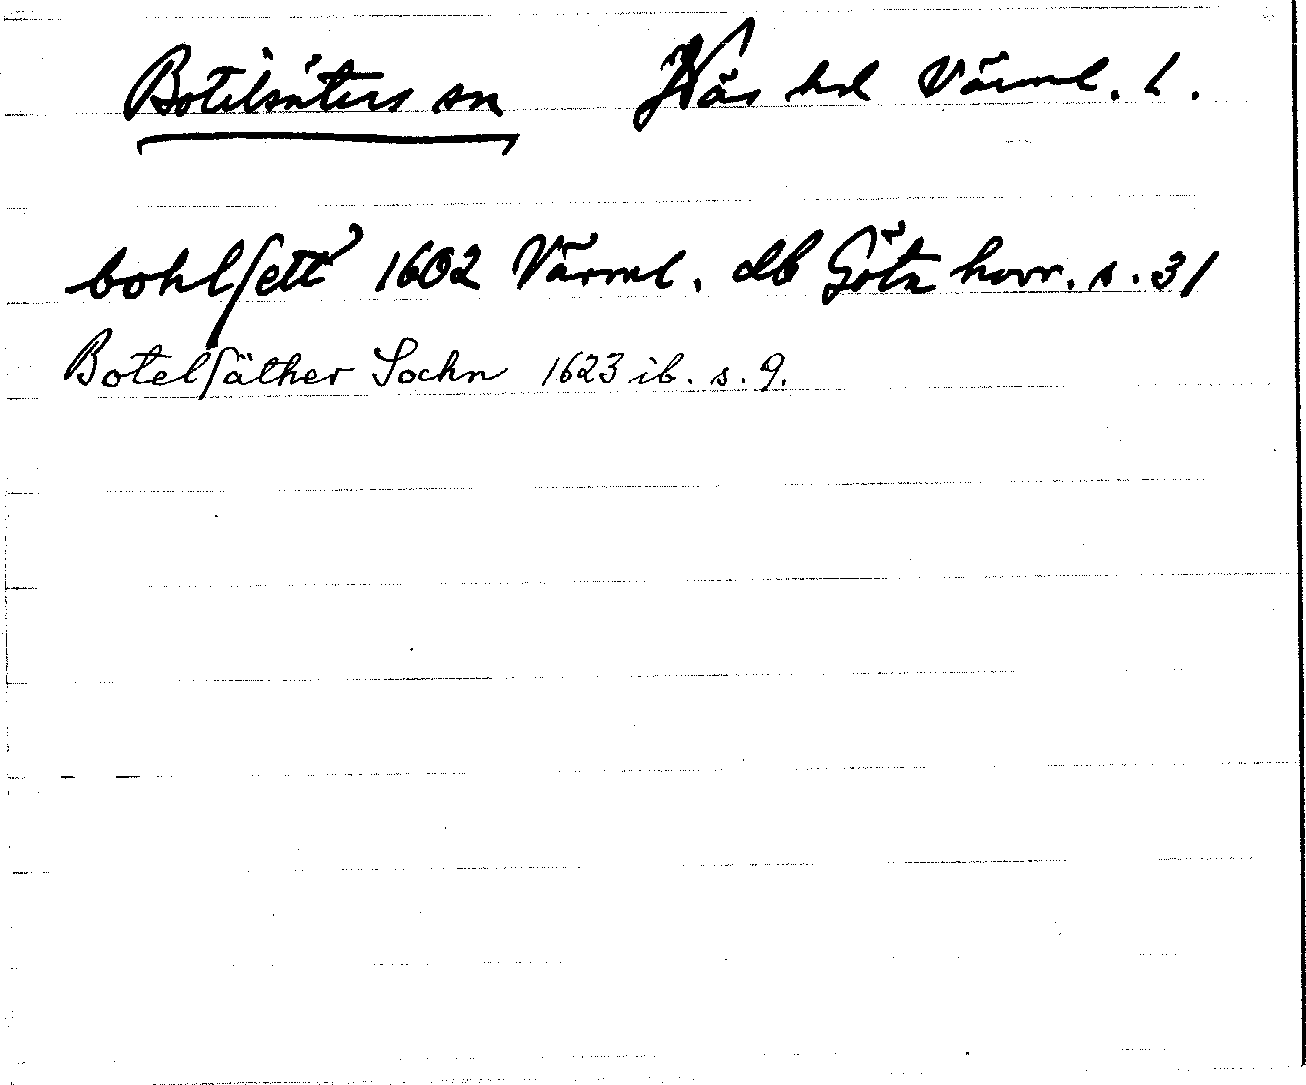 Botilsäters sn Näs hd Värml. l.
bohlsett 1602 Värml. db Göta hovr. s. 31
Botelsäther Sochn 1623 ib. s. 9.